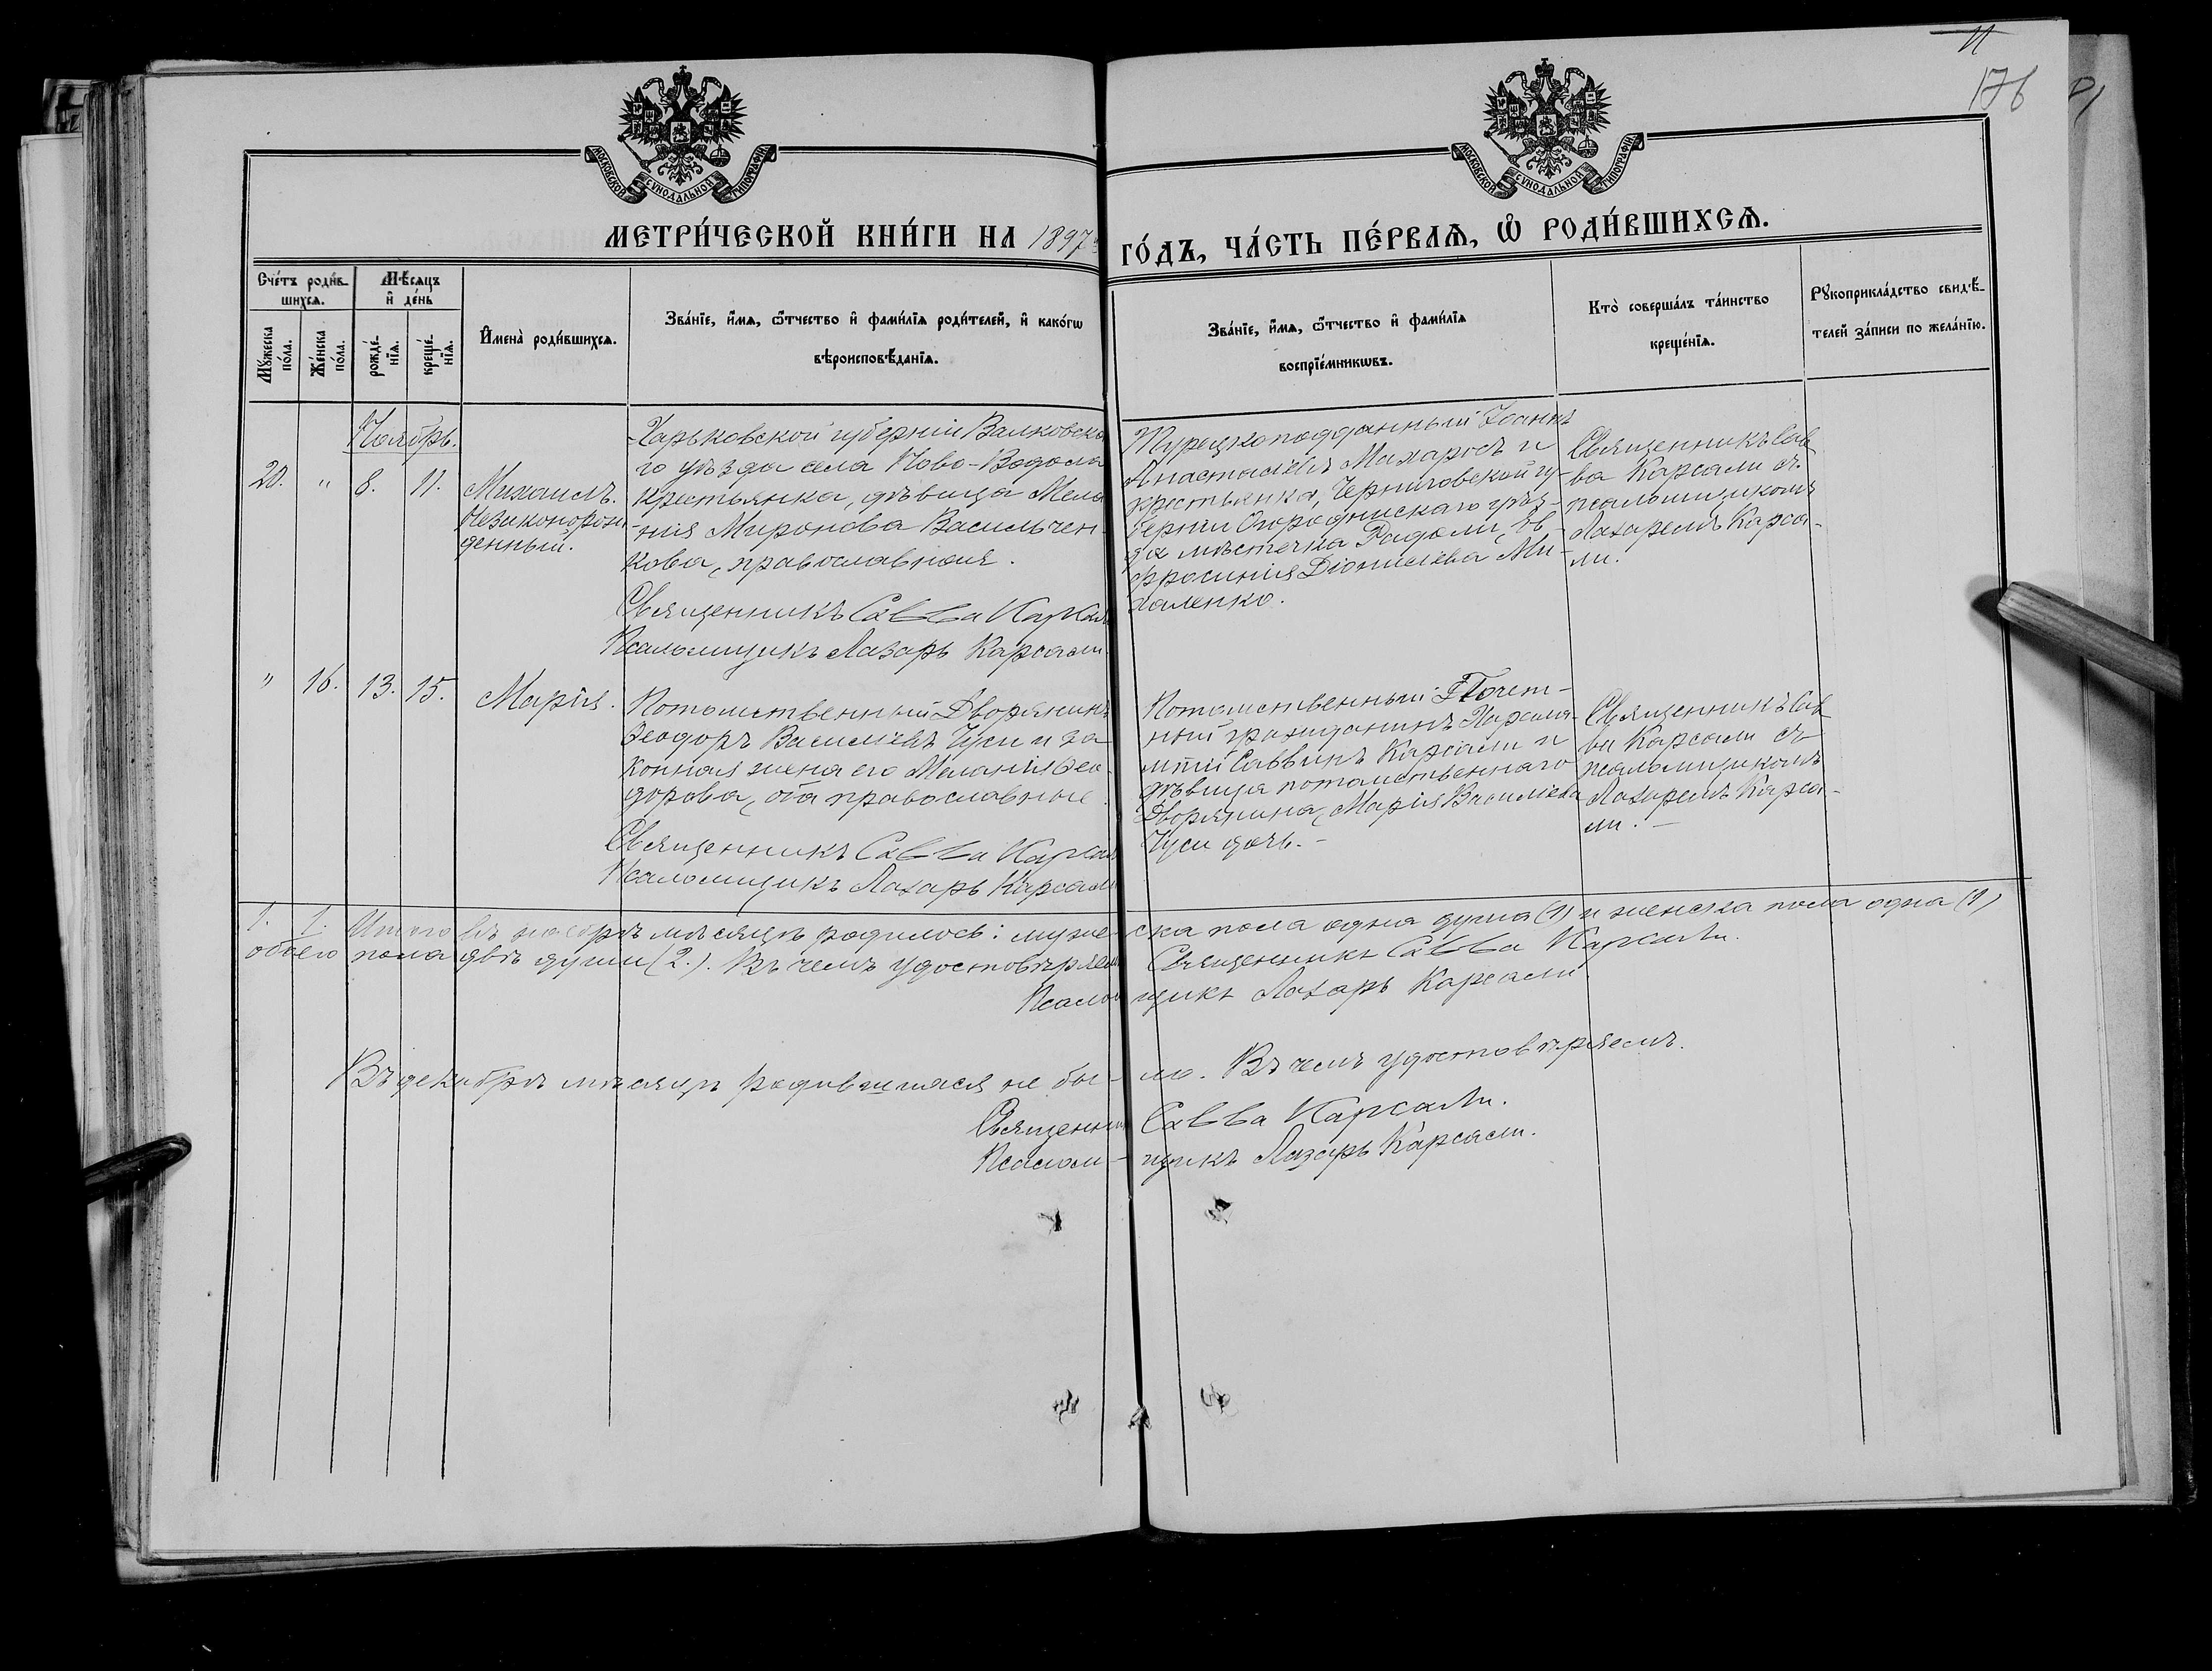 11
176
МОСКОВСКОЙ СѴНОДАЛЬНОЙ ТИПОГРАФІИ
МОСКОВСКОЙ СѴНОДАЛЬНОЙ ТИПОГРАФІИ
МЕТРИ́ЧЕСКОЙ КНИ́ГИ НА 1897 й
ГО́ДЪ, ЧА́СТЬ ПЕ́РВАѦ, Ѡ РОДИ́ВШИХСѦ.
Сче́тъ роди́в-
шихсѧ.
Мѣ́сѧцъ
и҆ де́нь
Мꙋ́жеска
по́ла.
Же́нска
по́ла.
рожде́-
нїѧ.
креще́-
нїѧ.
И҆мена̀ роди́вшихсѧ.
Зва́нїе, и҆́мѧ, ѻ҆́тчество и҆ фами́лїѧ роди́телей, и҆ како́гѡ
вѣроисповѣ́данїѧ.
Зва́нїе, и҆́мѧ, ѻ҆́тчество и҆ фами́лїѧ
воспрїе́мникѡвъ.
Кто̀ соверша́лъ та́инство
креще́нїѧ.
Рꙋкоприкла́дство свидѣ́-
телей за́писи по жела́нїю.
Ноябрь.
20. " 8. 11.
Михаилъ.
Незаконорож
денный.
Харьковской губерніи Валковска
го уѣзда села Ново-Водола
крестьянка, дѣвица Мела
нія Миронова Васильчен-
кова, православная.
Священникъ Савва Карсали
Псаломщикъ Лазарь Карсали.
Турецкоподданный Іоаннъ
Анастасіевъ Махаросъ и
крестьянка, Черниговской гу-
берніи уѣз-
да мѣстечка Радоми, Ев-
фросинія Діонисіева Ми-
халенко.
Священникъ Сав
ва Карсали съ
псаломщикомъ
Лазаремъ Карса-
ли.
" 16. 13. 15.
Марія.
Потомственный Дворянинъ
Ѳеодоръ Васильевъ Чуси и за
конная жена его Меланія Ѳео-
дорова, оба православные.
Священникъ Савва Карсали
Псаломщикъ Лазарь Карсали
Потомственный Почет-
ный гражданинъ
Саввинъ Карсали и
дѣвица потомственнаго
Дворянина, Марія Васильева
Чуси дочь. -
Священникъ Сав
ва Карсали съ
псаломщикомъ
Лазаремъ Карса-
ли. -
1. 1. Итого въ ноябрѣ мѣсяцѣ родилось: муже-
ска пола одна душа (1) и женска пола одна (1)
обоего пола двѣ души (2.). Въ чемъ удостовѣряемъ
Священникъ Савва Карсали.
Псалом
щикъ Лазарь Карсали
Въ декабрѣ мѣсяцѣ родившихся не бы-
ло. Въ чемъ удостовѣряемъ.
Священникъ
Савва Карсали.
Псалом-
щикъ Лазарь Карсали.